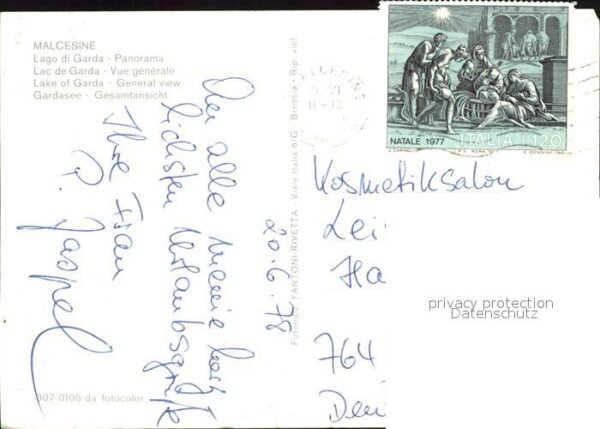 MALCESINE
Lago di Garda - Panorama
Lac de Garda - Vue générale
Lake of Garda - General view
Gardasee - Gesamtansicht
20.6.78
An alle meine herz
lichsten Urlaubsgrüße
Ihre Frau
P. Jaspel
807-0105 da fotocolor
Fotocolor FANTONI-RIVETTA - Viale Italia 6/G - Brescia - Rip. viet.
MALCESINE
21.VI
11-12
NATALE 1977
ITALIA L.120
Kosmetiksalon
Lei
Ha
764
Deu
privacy protection
Datenschutz